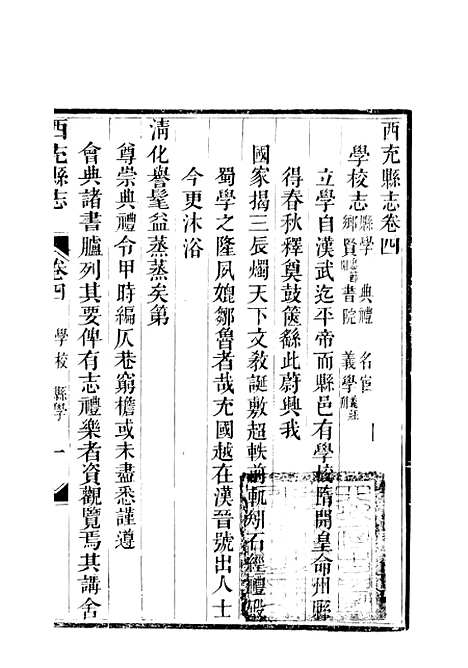 西充縣志卷四
學校志 縣學 典禮 名宦
鄉賢 書院 義學
立學自漢武迄平帝而縣邑有學校隋開皇命州縣
得春秋釋奠鼓篋繇此蔚興我
國家揭三辰燭天下文教誕敷超軼前軌矧石經禮殿
蜀學之隆夙媲鄒魯者哉充國越在漢晉號出人士
今更沐浴
清化譽髦益蒸蒸矣第
尊崇典禮令甲時編仄巷窮檐或未盡悉謹遵
會典諸書臚列其要俾有志禮樂者資觀覽焉其講舍
西充縣志 卷四 學校 縣學 一